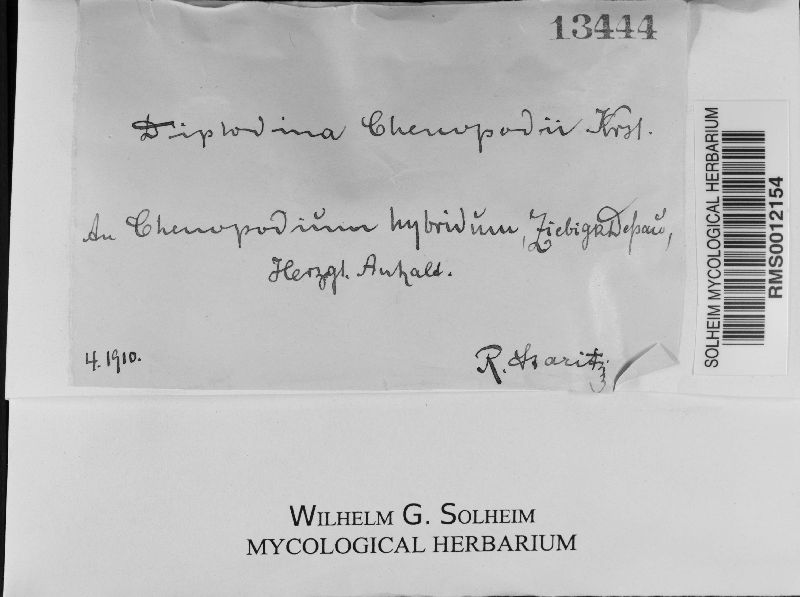 13444
Diplodina Chenopodii Krst.
An Chenopodium hybridum, Ziebigk Deßau,
Herzgt. Anhalt.
4. 1910.
R. Staritz
SOLHEIM MYCOLOGICAL HERBARIUM
RMS0012154
WILHELM G. SOLHEIM
MYCOLOGICAL HERBARIUM